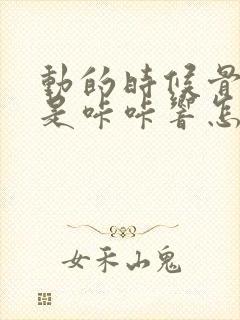 動的時候骨
是咔咔響怎
女禾山鬼